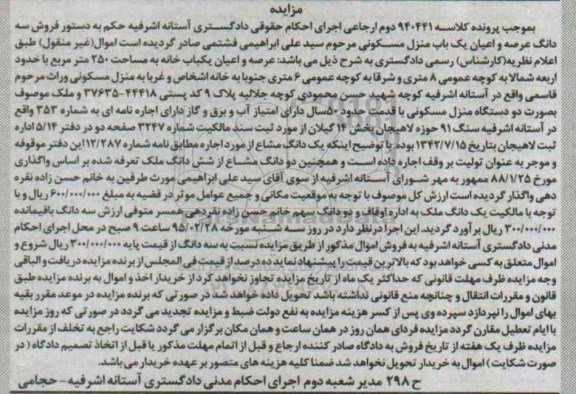 مزایده
بموجب پرونده کلاسه ۹۴۰۴۴۱ دوم ارجاعی اجرای احکام حقوقی دادگستری آستانه اشرفیه حکم به دستور فروش سه
دانگ عرصه و اعیان یک باب منزل مسکونی مرحوم سید علی ابراهیمی فشتمی صادر گردیده است اموال(غیر منقول) طبق
اعلام نظریه(کارشناس) رسمی دادگستری به شرح ذیل می باشد: عرصه و اعیان یکباب خانه به مساحت ۲۵۰ متر مربع با حدود
اربعه شمالا به کوچه عمومی ۸ متری و شرقا به کوچه عمومی ۶ متری جنوبا به خانه اشخاص و غربا به منزل مسکونی وراث مرحوم
قاسمی واقع در آستانه اشرفیه کوچه شهید حسن محمودی کوچه جلالیه پلاک ۹ کد پستی ۴۴۴۱۸-۳۷۶۳۵ و ملک موصوف
بصورت دو دستگاه منزل مسکونی با قدمت حدود ۵۰سال دارای امتیاز آب و برق و گاز دارای اجاره نامه ای به شماره ۳۵۳ واقع
در آستانه اشرفیه سنگ ۹۱ حوزه لاهیجان بخش ۱۴ گیلان از مورد ثبت سند مالکیت شماره ۳۲۴۷ صفحه دو در دفتر ۵/۱۴ اداره
ثبت لاهیجان بتاریخ ۱۳۴۲/۷/۱۵ بوده. با توضیح اینکه یک دانگ مشاع از مورد اجاره مطابق نامه شماره ۱۱۲/۲۸۷ این دفتر موقوفه
و موجر به عنوان تولیت بر وقف اجاره داده است و همچنین دو دانگ مشاع از شش دانگ ملک تعرفه شده بر اساس واگذاری
مورخ ۸۸/۱/۲۵ ممهور به مهر شورای آستانه اشرفیه از سوی آقای سید علی ابراهیمی مورث طرفین به خانم حسن زاده نقره
دهی واگذار گردیده است ارزش کل موصوف با توجه به موقعیت مکانی و جمیع عوامل موثر در قضیه به مبلغ ۶۰۰/۰۰۰/۰۰۰ ریال و با
توجه با مالکیت یک دانگ ملک به اداره اوقاف و دو دانگ سهم خانم حسن زاده نقره دهی همسر متوفی ارزش سه دانگ باقیمانده
۳۰۰/۰۰۰/۰۰۰ ریال برآورد گردید. این اجرا درنظر دارد در روز سه شنبه مورخه ۹۵/۰۲/۲۸ ساعت ۹ صبح در محل اجرای احکام
مدنی دادگستری آستانه اشرفیه به فروش اموال مذکور از طریق مزایده نسبت به سه دانگ از قیمت پایه ۳۰۰/۰۰۰/۰۰۰ ریال شروع و
اموال متعلق به کسی خواهد بود که بالاترین قیمت را پیشنهاد نماید ده درصد از قیمت فی المجلس از برنده مزایده دریافت و الباقی
وجه مزایده ظرف مهلت قانونی که حداکثر یک ماه از تاریخ مزایده تجاوز نخواهد کرد از خریدار اخذ و اموال به برنده مزایده طبق
قانون و مقررات انتقال و چنانچه منع قانونی نداشته باشد تحویل داده خواهد شد در صورتی که برنده مزایده در موعد مقرر بقیه
بهای اموال را نپردازد سپرده وی پس از کسر هزینه مزایده به نفع دولت ضبط و مزایده تجدید می گردد در صورتی که روز مزایده
با ایام تعطیل مقارن گردد مزایده فردای همان روز در همان ساعت و همان مکان برگزار می گردد شکایت راجع به تخلف از مقررات
مزایده ظرف یک هفته از تاریخ فروش به دادگاه صادر کننده ارجاع و قبل از اتمام مهلت مذکور یا قبل از اتخاذ تصمیم دادگاه ( در
صورت شکایت) اموال به خریدار تحویل نخواهد شد ضمنا کلیه هزینه های متصور بر عهده خریدار می باشد.
ح ۲۹۸ مدیر شعبه دوم اجرای احکام مدنی دادگستری آستانه اشرفیه- حجامی